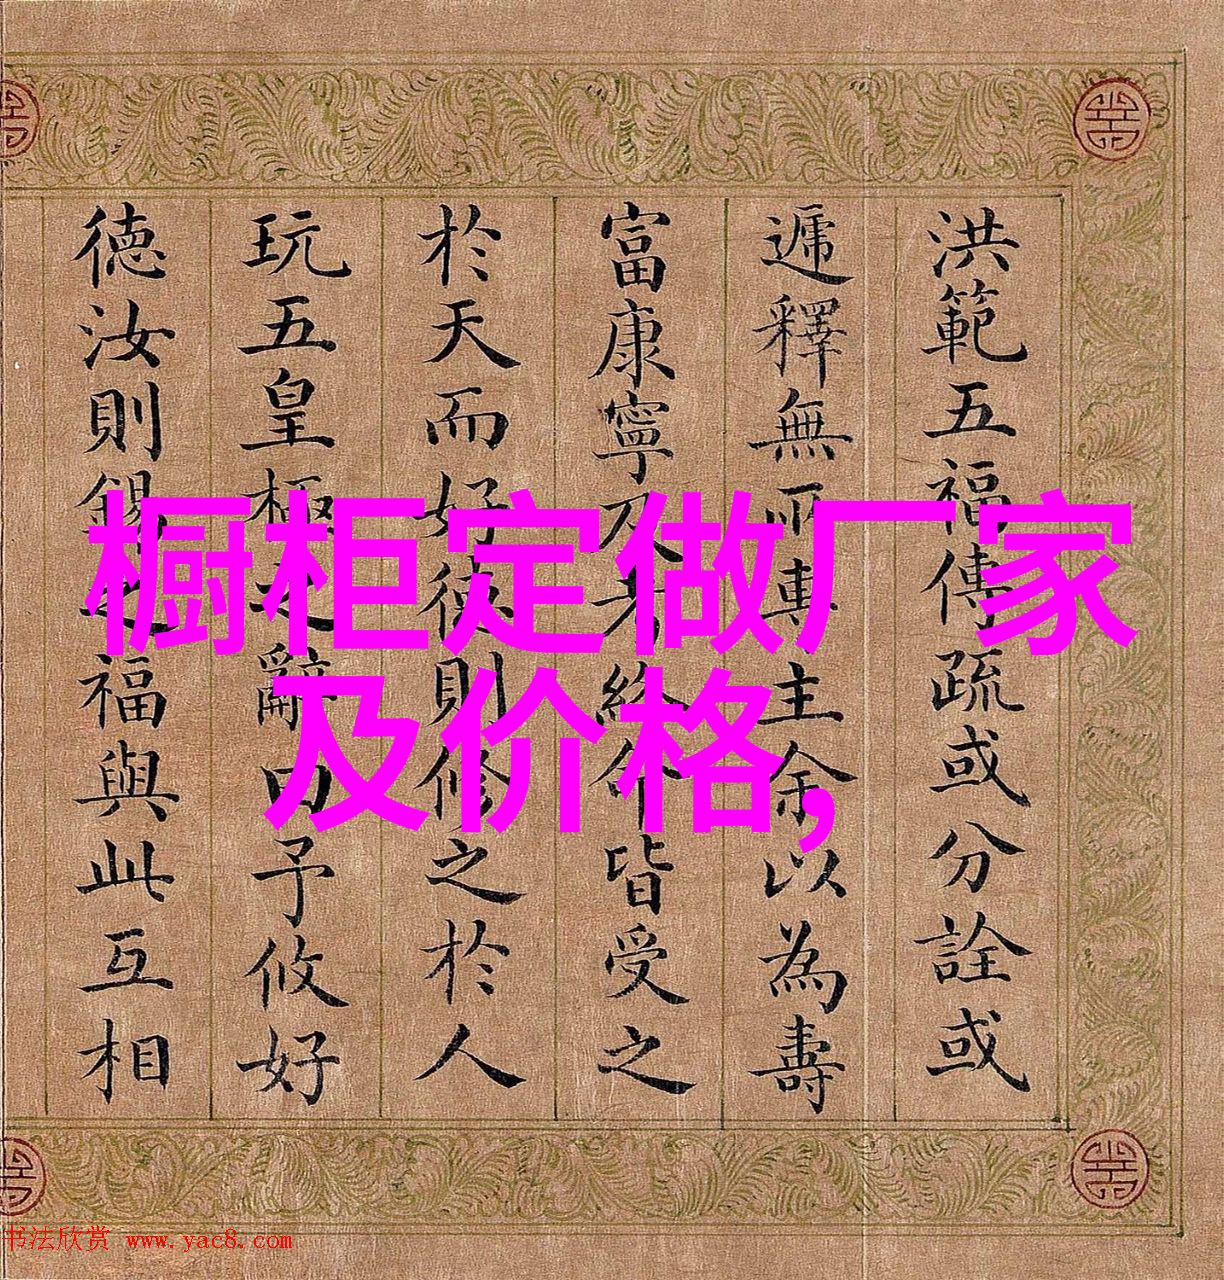 橱柜定做厂家
及价格,
洪範五福傳疏或分詮或
遞釋無所專主余以為壽
富康寧及考終命皆受之
於天而好德則修之於人
玩五皇極之辭曰予攸好
德汝則錫之福與此互相
书法欣赏 www.yac8.com